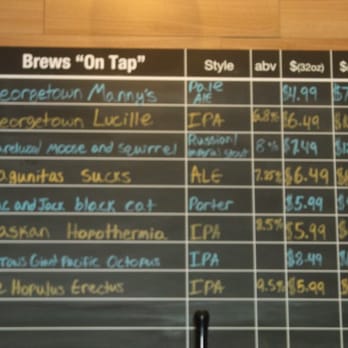 Brews "On Tap" Style abv $(32oz) $(
eorgetown Manny's Pale Ale $4.99 $7
eorgetown Lucille IPA 6.8% $6.49 $
moose and squirrel Russian imperial stout 8% $7.49
agunitas Sucks ALE $6.49
ac and Jack black cat Porter $5.99
askan Hopothermia IPA 8.5% $5.99
Giant Pacific Octopus IPA $8.49
Hopulus Erectus IPA 9.5% $5.99